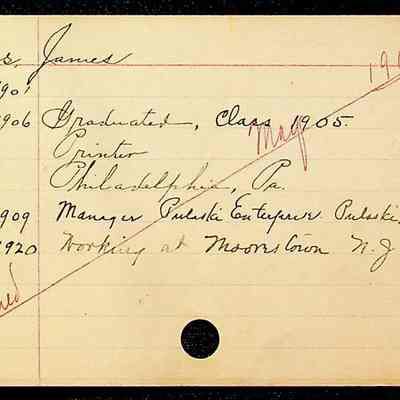 s. James
190
901
906 Graduated, Class 1905.
May
Printer
Philadelphia, Pa.
909 Manager Pulaski Enterprise Pulaski,
1920 Working at Moorestown N.J